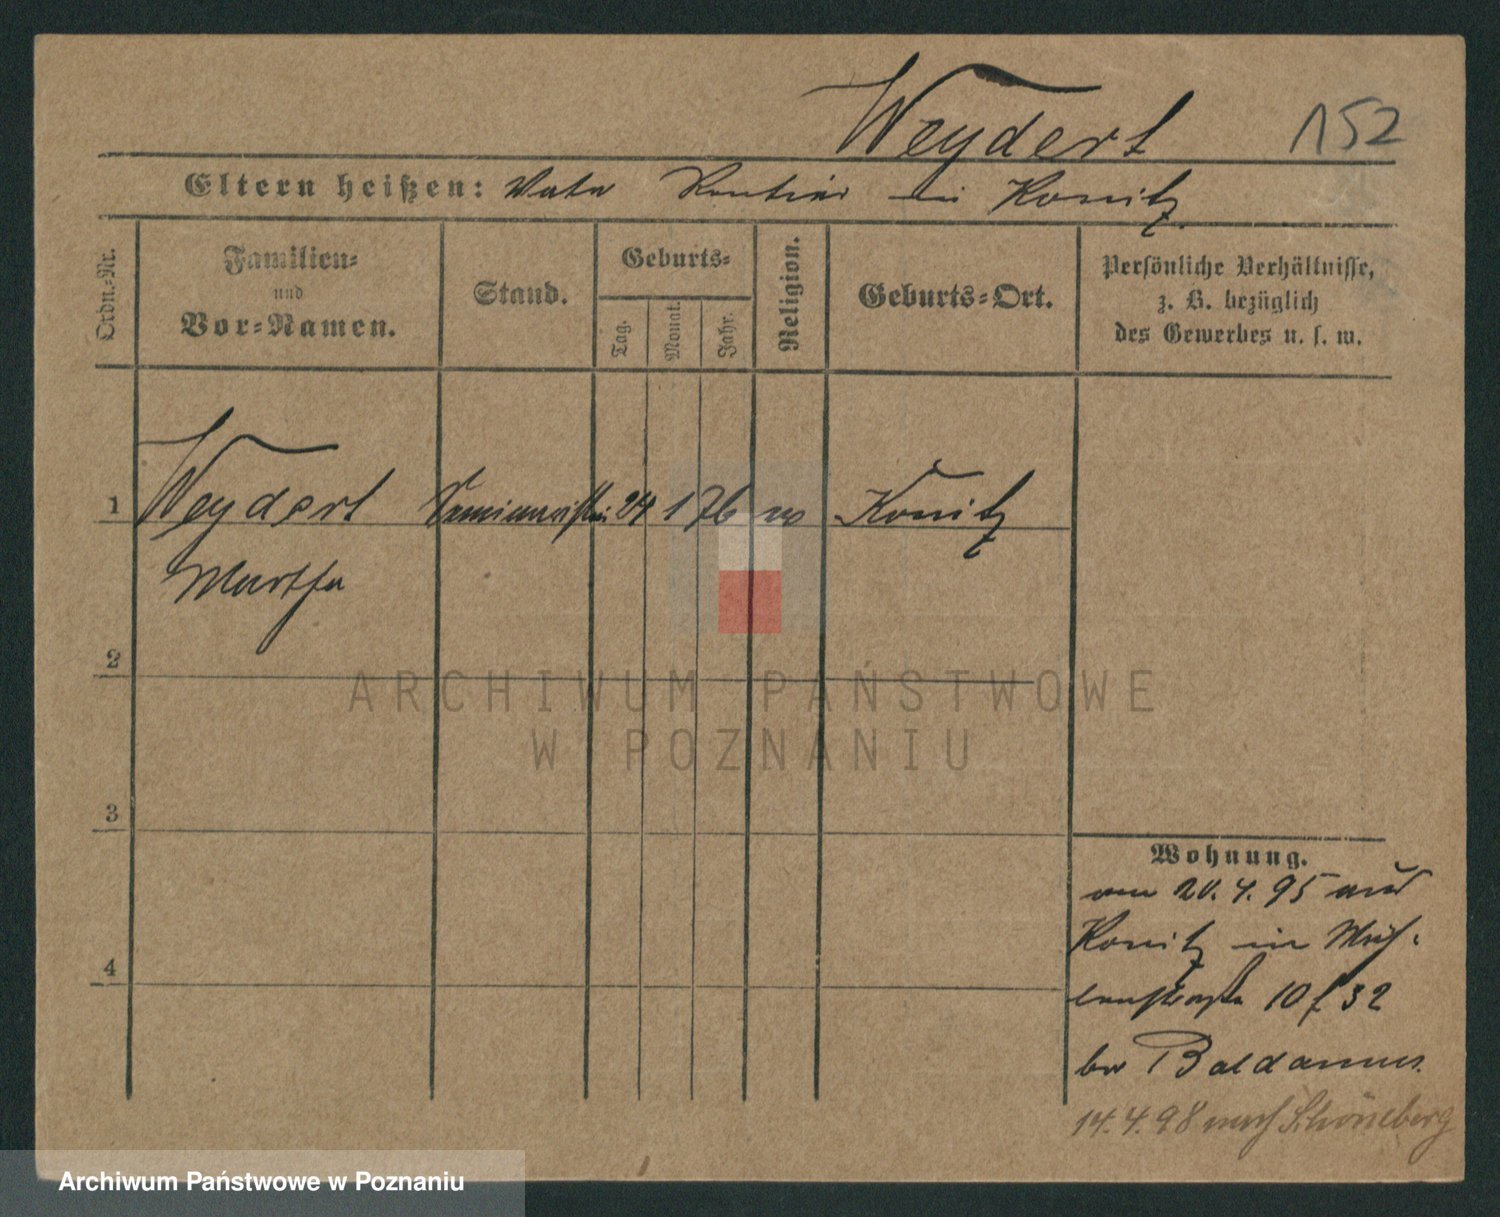 Weydert 152
Eltern heißen: Vater Rentier in Konitz
Ordn.-Nr.
Familien-
und
Vor-Namen.
Stand.
Geburts-
Tag.
Monat.
Jahr.
Religion.
Geburts-Ort.
Persönliche Verhältnisse,
z. B. bezüglich
des Gewerbes u. s. w.
1 Weydert Seminaristin 24 1 76 Konitz
Martha
2
ARCHIWUM PAŃSTWOWE
W POZNANIU
3
4
Wohnung.
20.4.95 aus
Konitz in Müh-
lenstraße 10 f 32
bei Baldamus.
14.4.98 nach Schöneberg
Archiwum Państwowe w Poznaniu